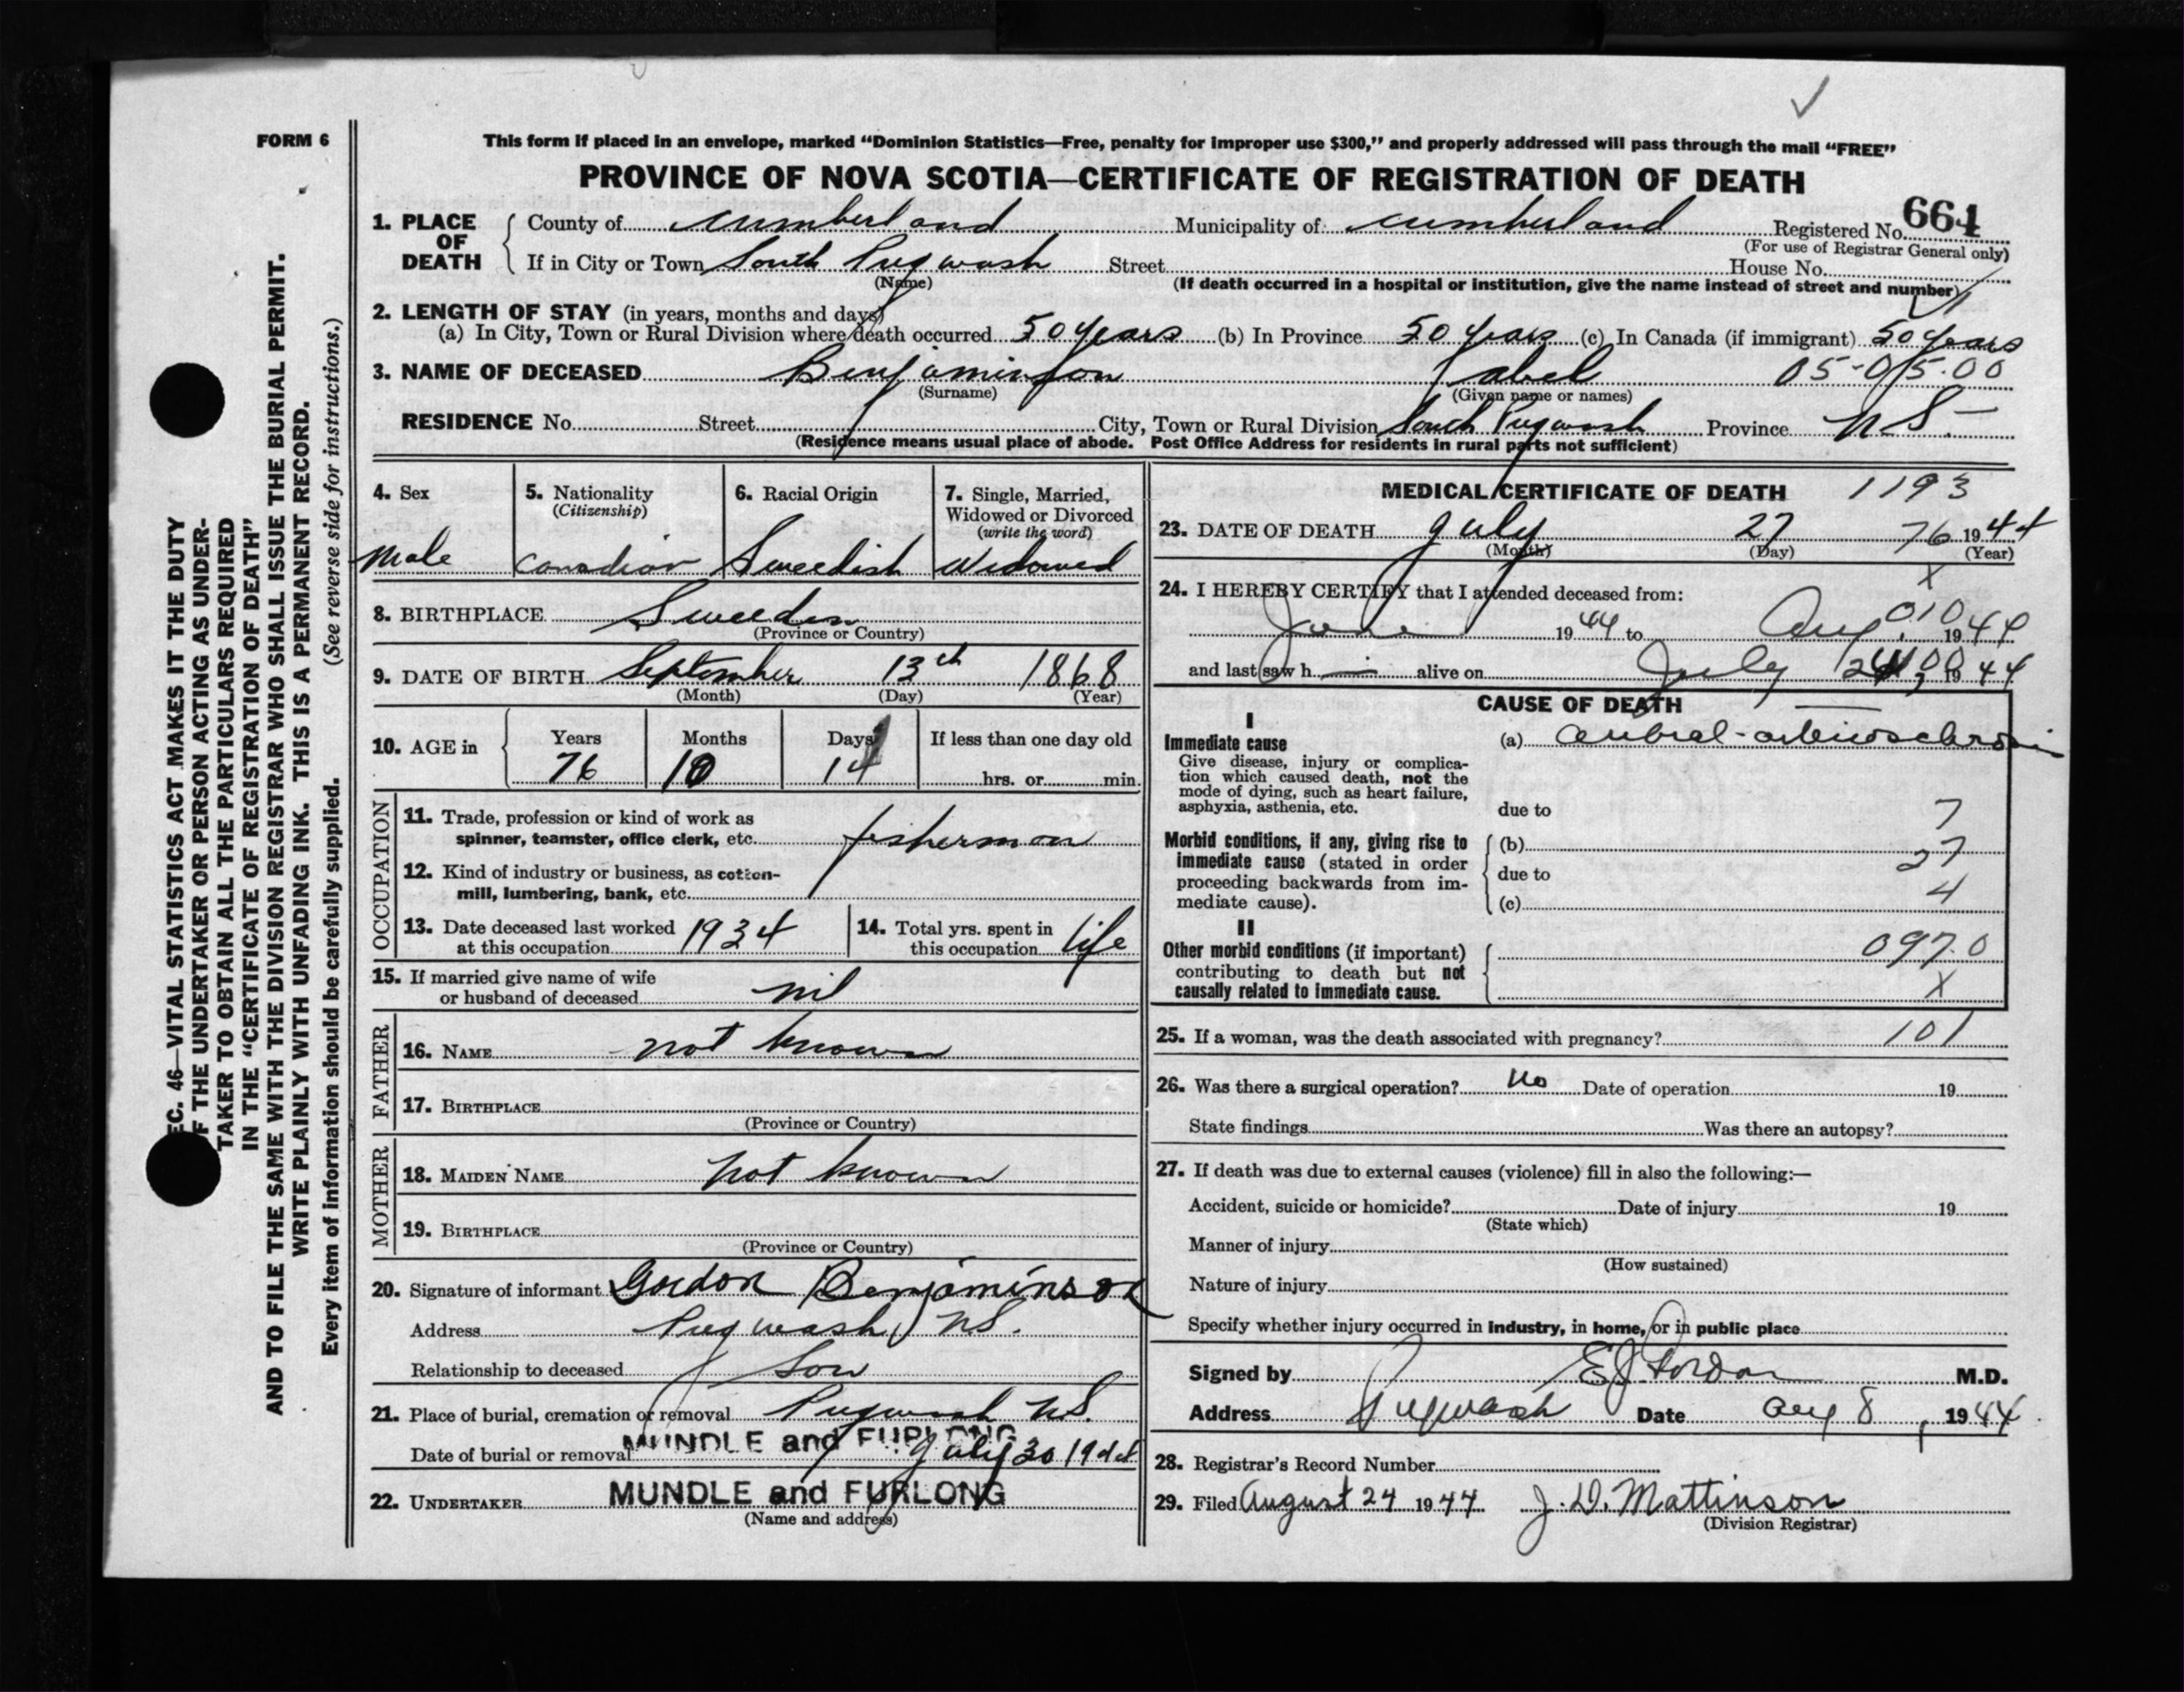 FORM 6
This form if placed in an envelope, marked “Dominion Statistics—Free, penalty for improper use $300,” and properly addressed will pass through the mail “FREE”
PROVINCE OF NOVA SCOTIA—CERTIFICATE OF REGISTRATION OF DEATH
1. PLACE OF DEATH County of Cumberland Municipality of Cumberland Registered No. 664
(For use of Registrar General only)
If in City or Town South Pugwash Street House No.
(Name) (If death occurred in a hospital or institution, give the name instead of street and number)
2. LENGTH OF STAY (in years, months and days)
(a) In City, Town or Rural Division where death occurred 50 years (b) In Province 50 years (c) In Canada (if immigrant) 50 years
3. NAME OF DECEASED Benjaminson Jabel 05-0/5.00
(Surname) (Given name or names)
RESIDENCE No. Street City, Town or Rural Division South Pugwash Province N.S.
(Residence means usual place of abode. Post Office Address for residents in rural parts not sufficient)
4. Sex 5. Nationality 6. Racial Origin 7. Single, Married,
(Citizenship) Widowed or Divorced
(write the word)
Male Canadian Sweedish Widowed
8. BIRTHPLACE Sweeden
(Province or Country)
9. DATE OF BIRTH September 13th 1868
(Month) (Day) (Year)
10. AGE in Years Months Days If less than one day old
76 10 14 hrs. or min.
OCCUPATION
11. Trade, profession or kind of work as
spinner, teamster, office clerk, etc. fisherman
12. Kind of industry or business, as cotton-
mill, lumbering, bank, etc.
13. Date deceased last worked 14. Total yrs. spent in
at this occupation 1934 this occupation life
15. If married give name of wife
or husband of deceased nil
FATHER
16. NAME not known
17. BIRTHPLACE
(Province or Country)
MOTHER
18. MAIDEN NAME not known
19. BIRTHPLACE
(Province or Country)
20. Signature of informant Gordon Benjaminson
Address Pugwash, N.S.
Relationship to deceased Son
21. Place of burial, cremation or removal Pugwash N.S.
MUNDLE and FURLONG
Date of burial or removal July 30 1944
22. UNDERTAKER MUNDLE and FURLONG
(Name and address)
MEDICAL CERTIFICATE OF DEATH 1193
23. DATE OF DEATH July 27 76 1944
(Month) (Day) (Year)
X
24. I HEREBY CERTIFY that I attended deceased from:
010
June 1944 to Aug. 1944
and last saw h alive on July 1944
CAUSE OF DEATH
I
Immediate cause (a) Cerebral-arteriosclerosis
Give disease, injury or complica-
tion which caused death, not the
mode of dying, such as heart failure,
asphyxia, asthenia, etc. due to 7
Morbid conditions, if any, giving rise to (b) 27
immediate cause (stated in order
proceeding backwards from im- due to
mediate cause). (c) 4
II
Other morbid conditions (if important) 097.0
contributing to death but not
causally related to immediate cause. X
25. If a woman, was the death associated with pregnancy? 101
26. Was there a surgical operation? No Date of operation 19
State findings Was there an autopsy?
27. If death was due to external causes (violence) fill in also the following:—
Accident, suicide or homicide? Date of injury 19
(State which)
Manner of injury
(How sustained)
Nature of injury
Specify whether injury occurred in industry, in home, or in public place
Signed by M.D.
Address Pugwash Date Aug 8, 1944
28. Registrar's Record Number
29. Filed August 24 1944 J. D. Mattinson
(Division Registrar)
EC. 46—VITAL STATISTICS ACT MAKES IT THE DUTY
F THE UNDERTAKER OR PERSON ACTING AS UNDER-
TAKER TO OBTAIN ALL THE PARTICULARS REQUIRED
IN THE “CERTIFICATE OF REGISTRATION OF DEATH”
AND TO FILE THE SAME WITH THE DIVISION REGISTRAR WHO SHALL ISSUE THE BURIAL PERMIT.
WRITE PLAINLY WITH UNFADING INK. THIS IS A PERMANENT RECORD.
Every item of information should be carefully supplied. (See reverse side for instructions.)